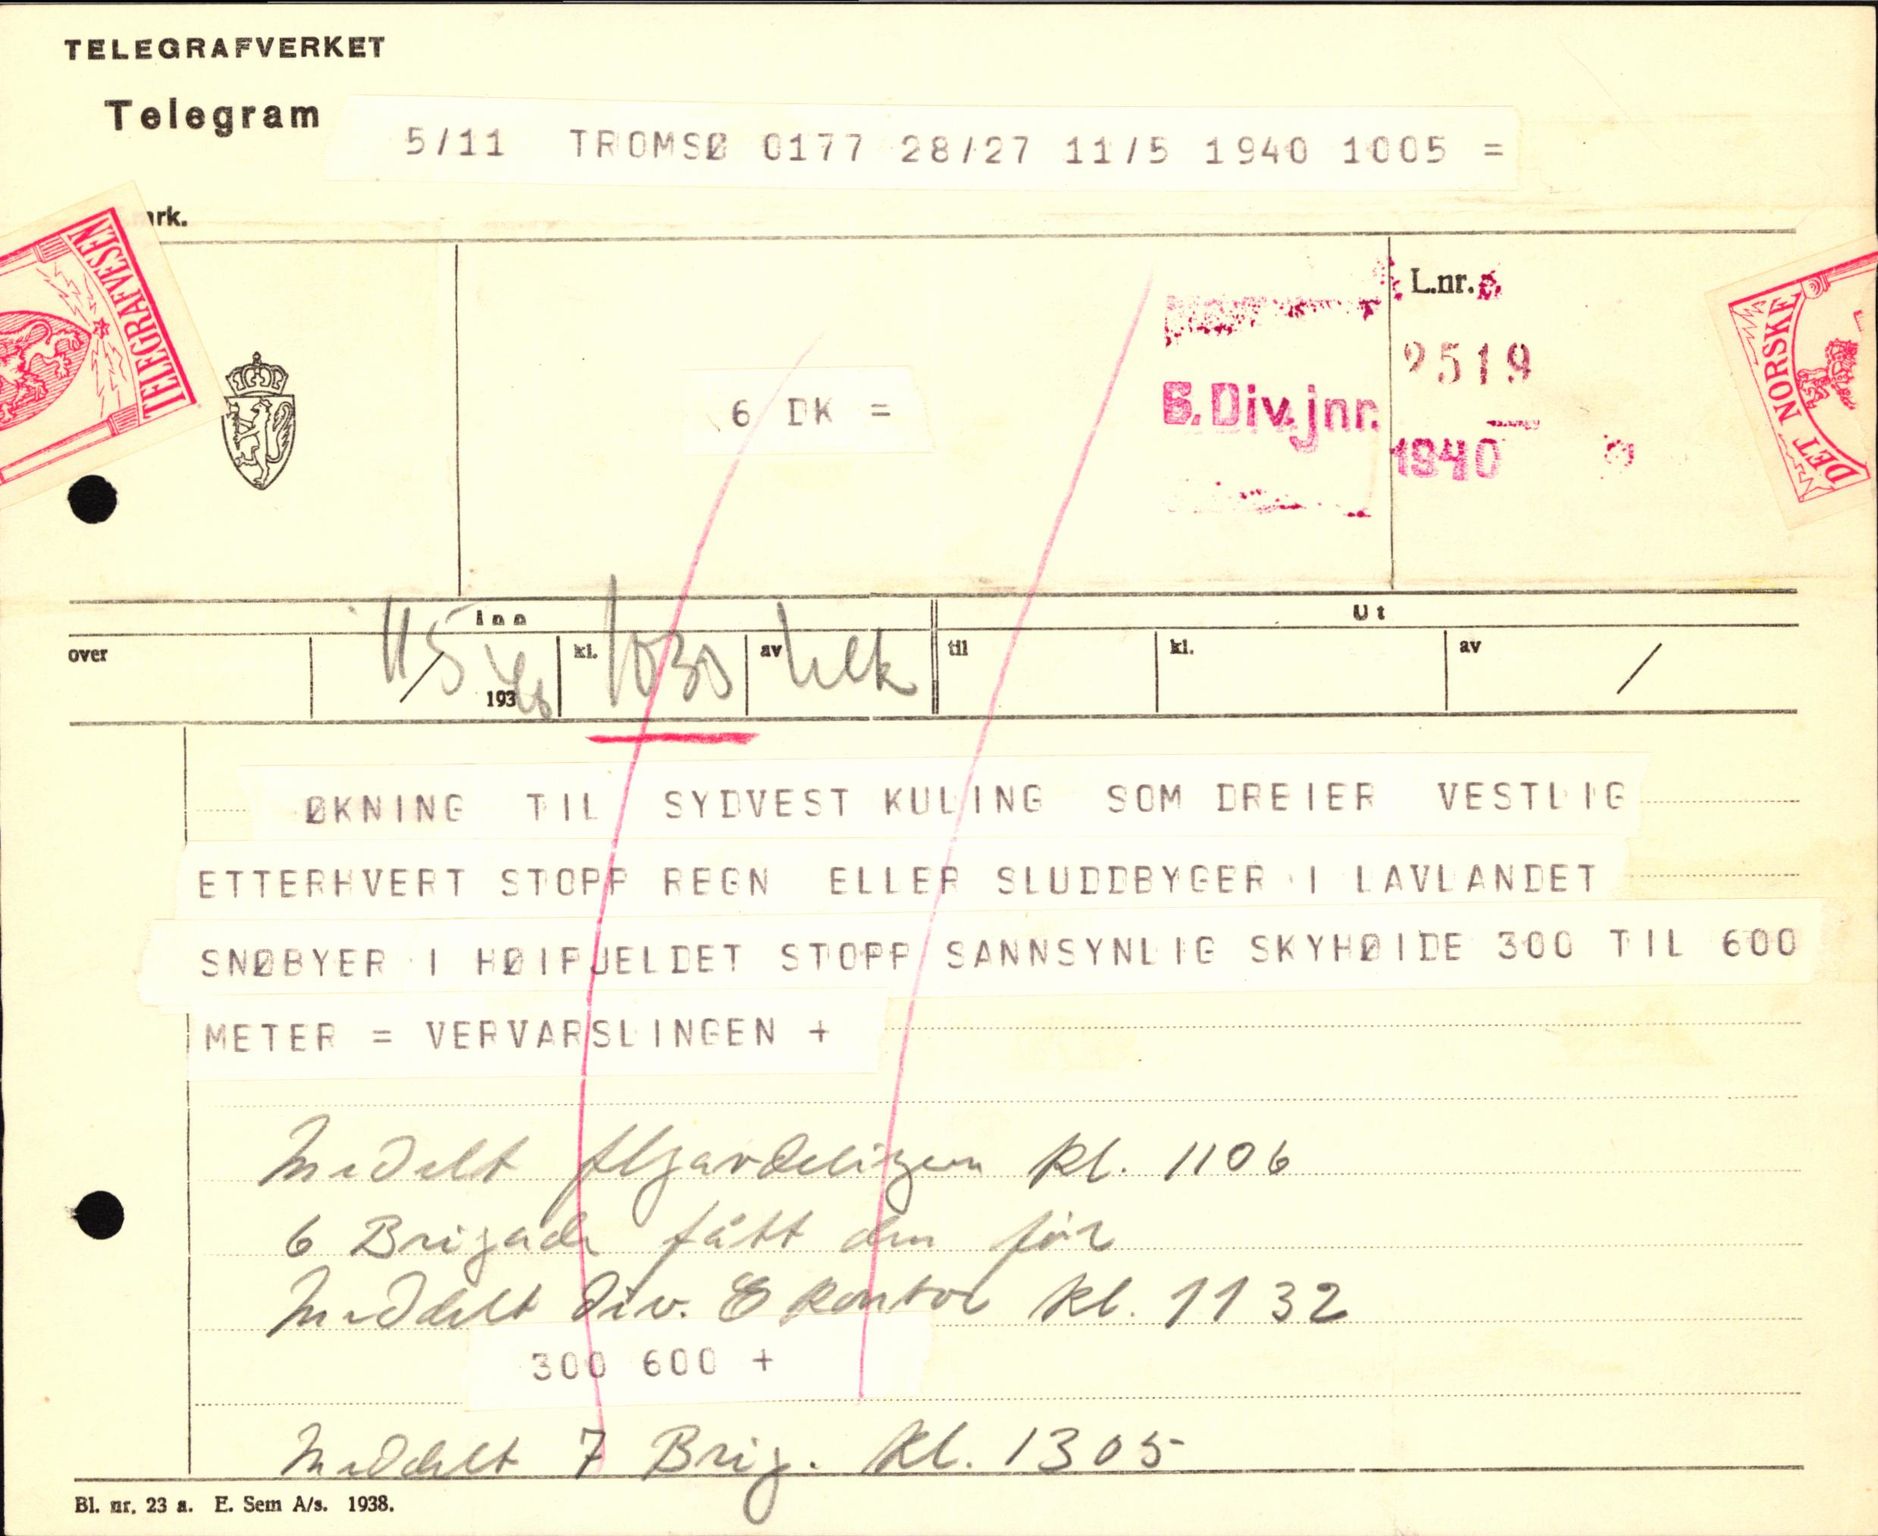 TELEGRAFVERKET
Telegram
5/11 TROMSØ 0177 28/27 11/5 1940 1005 =
mrk.
TELEGRAFVESEN
DET NORSKE
L.nr.
2519
6. Div. jnr.
1940
6 DK =
Inn
Ut
over
11/5 193 40
kl. 1030
av
til
kl.
av
/
ØKNING TIL SYDVEST KULING SOM DREIER VESTLIG
ETTERHVERT STOPP REGN ELLER SLUDDBYGER I LAVLANDET
SNØBYER I HØIFJELDET STOPP SANNSYNLIG SKYHØIDE 300 TIL 600
METER = VERVARSLINGEN +
Meddelt kl. 1106
6 Brigade fått den før
Meddelt Div. E kontor kl. 11 32
300 600 +
Meddelt 7 Brig. kl. 1305
Bl. nr. 23 a. E. Sem A/s. 1938.